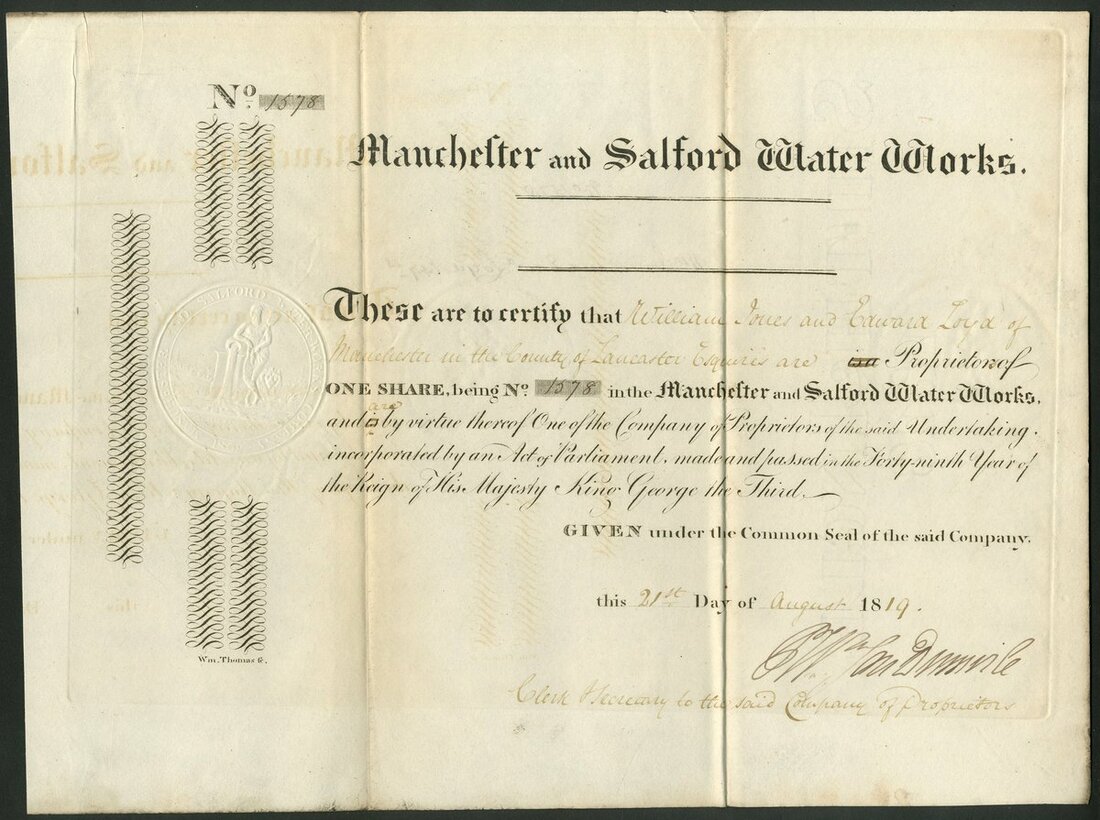 No 1578
Manchester and Salford Water Works.
These are to certify that William Jones and Edward Loyd of
Manchester in the County of Lancaster Esquires are is a Proprietors of
ONE SHARE, being No. 1578 in the Manchester and Salford Water Works,
are
and is by virtue thereof One of the Company of Proprietors of the said Undertaking.
incorporated by an Act of Parliament, made and passed in the Forty-ninth Year of
the Reign of His Majesty King George the Third.
GIVEN under the Common Seal of the said Company.
this 21st Day of August 1819.
Wm. Thomas sc.
Clerk & Secretary to the said Company of Proprietors
SALFORD